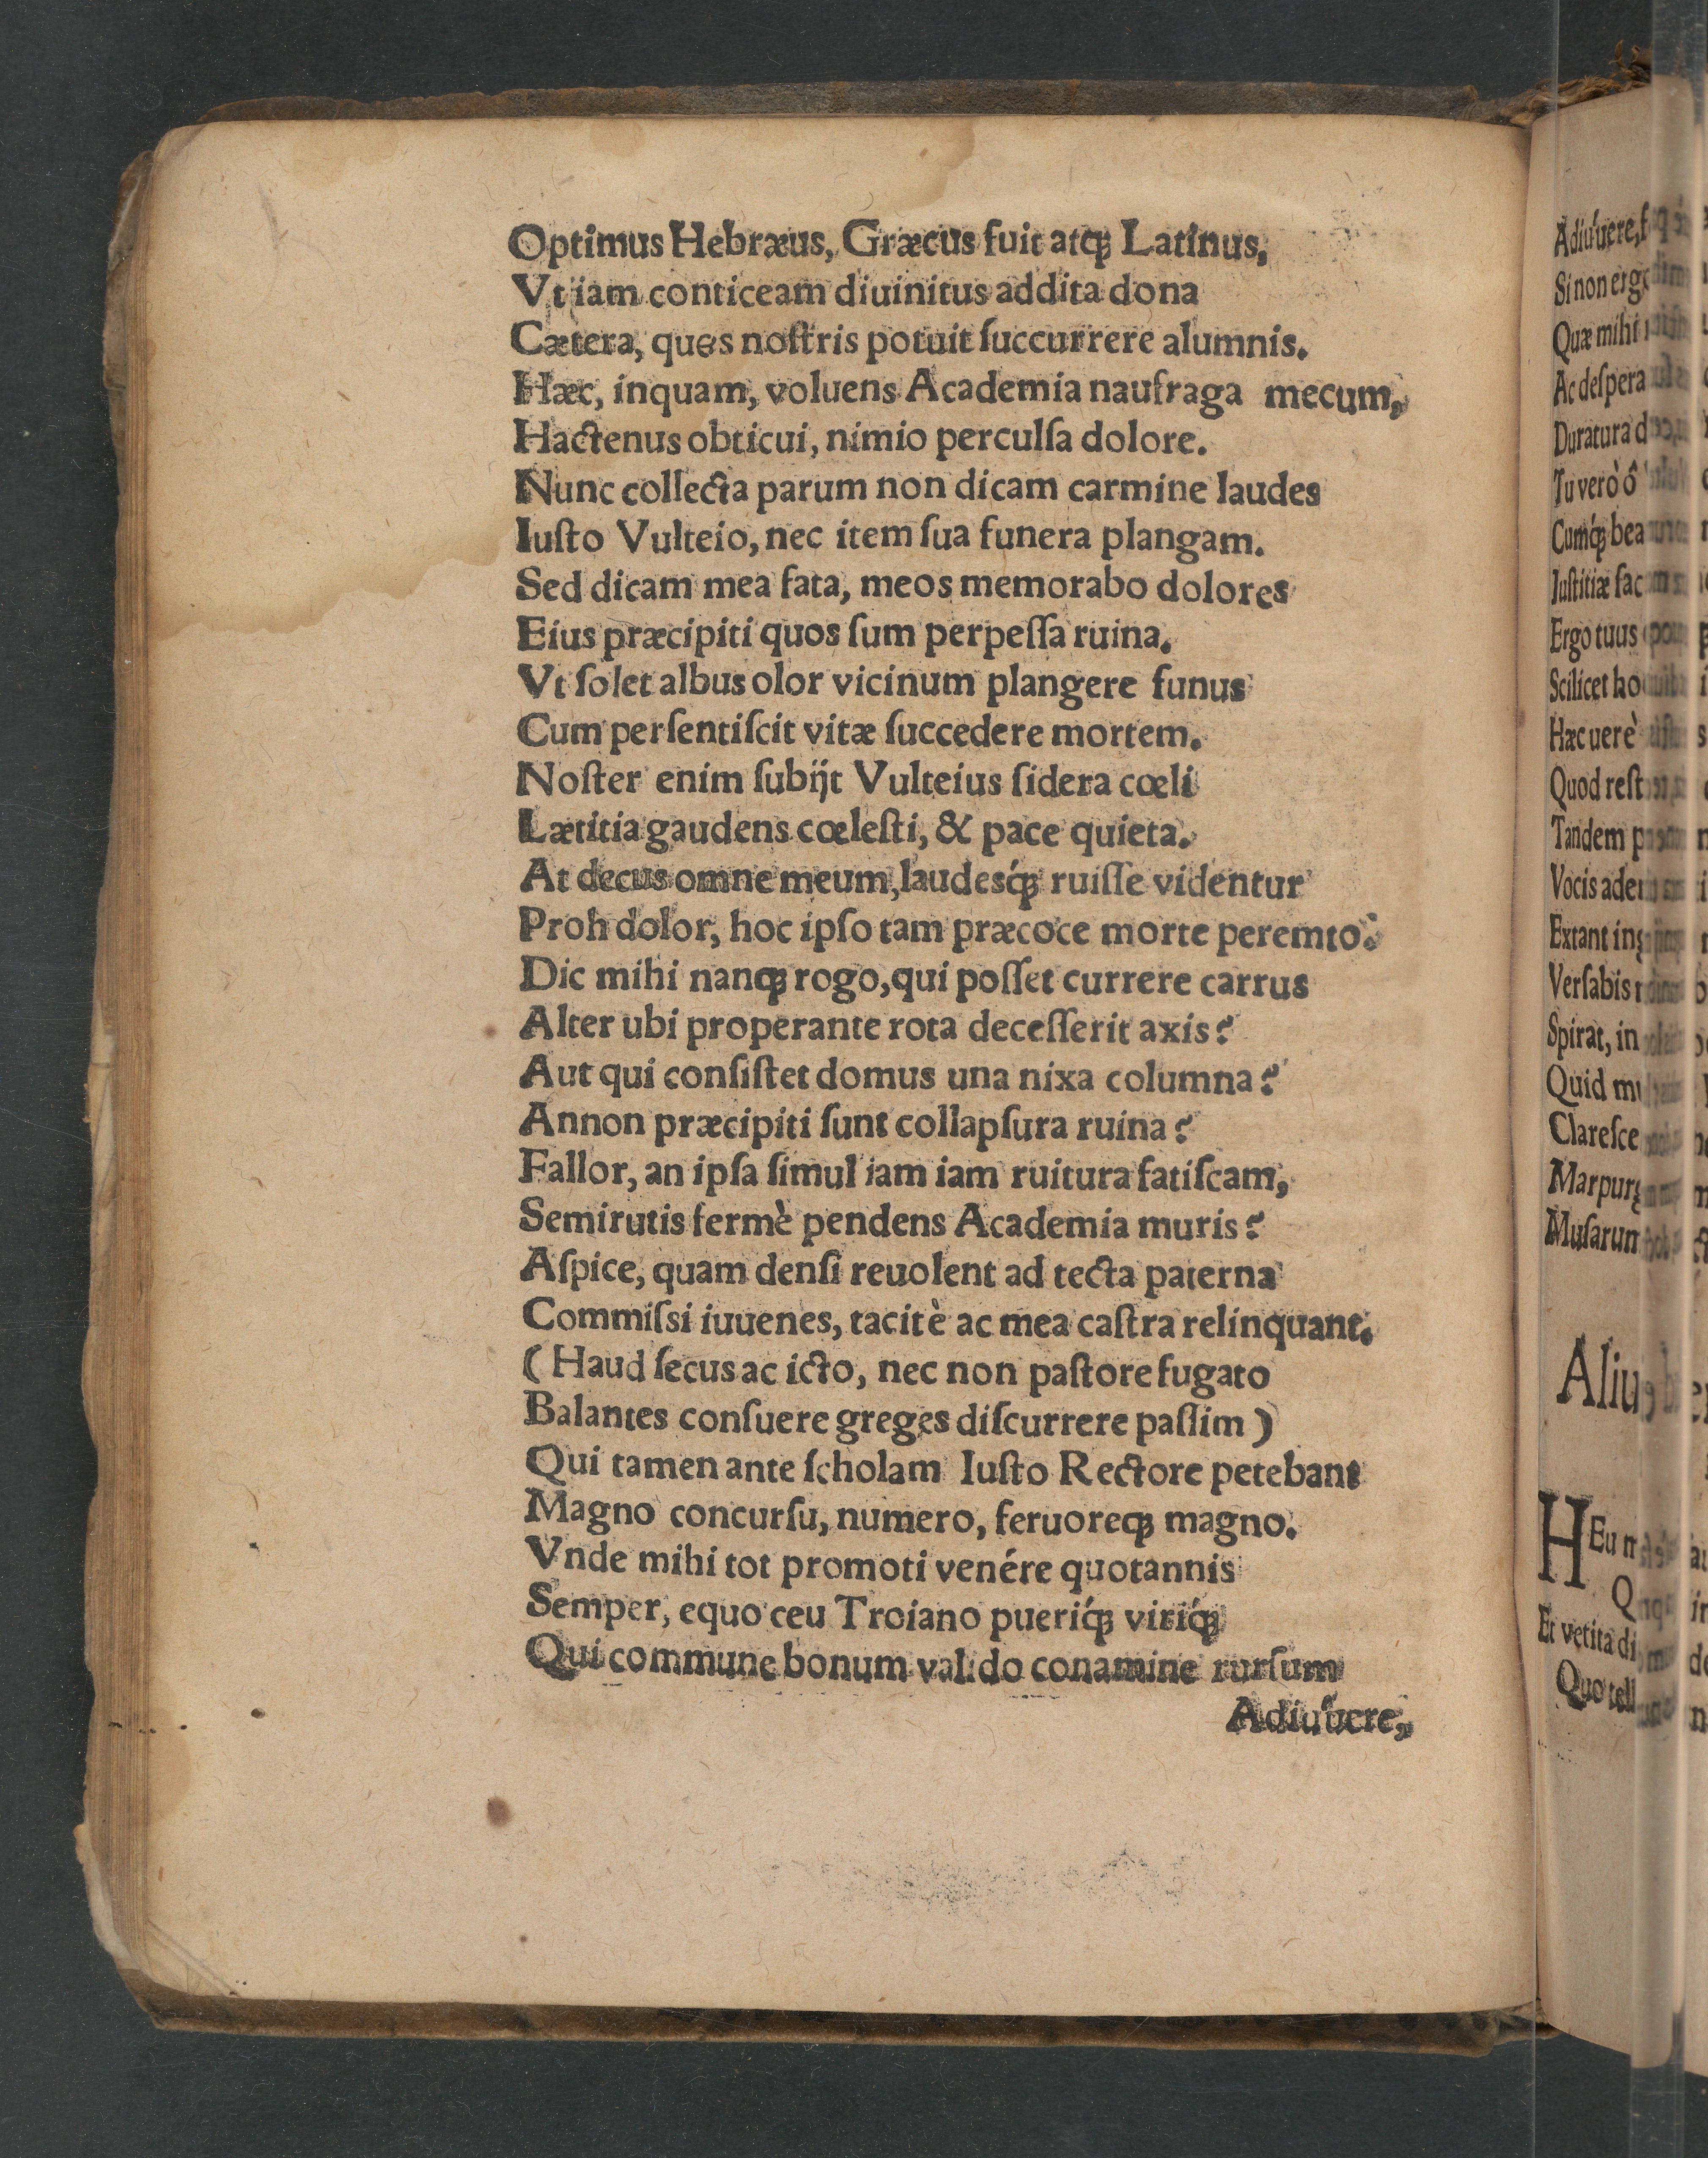 Optimus Hebræus, Græcus fuit atq́ꝫ Latinus,
Vt iam conticeam diuinitus addita dona
Cætera, queis noſtris potuit ſuccurrere alumnis.
Hæc, inquam, voluens Academia naufraga mecum,
Hactenus obticui, nimio perculſa dolore.
Nunc collecta parum non dicam carmine laudes
Iuſto Vulteio, nec item ſua funera plangam.
Sed dicam mea fata, meos memorabo dolores
Eius præcipiti quos ſum perpeſſa ruina.
Vt ſolet albus olor vicinum plangere funus
Cum perſentiſcit vitæ ſuccedere mortem.
Noſter enim ſubijt Vulteius ſidera cœli
Lætitia gaudens cœleſti, & pace quieta.
At decus omne meum, laudesq́ꝫ ruiſſe videntur
Proh dolor, hoc ipſo tam præcoce morte peremto.
Dic mihi nanqꝫ rogo, qui poſſet currere carrus
Alter ubi properante rota deceſſerit axis?
Aut qui conſiſtet domus una nixa columna?
Annon præcipiti ſunt collapſura ruina?
Fallor, an ipſa ſimul iam iam ruitura fatiſcam,
Semirutis fermè pendens Academia muris?
Aſpice, quam denſi reuolent ad tecta paterna
Commiſsi iuuenes, tacitè ac mea caſtra relinquant.
(Haud ſecus ac icto, nec non paſtore fugato
Balantes conſuere greges diſcurrere paſſim)
Qui tamen ante ſcholam Iuſto Rectore petebant
Magno concurſu, numero, feruoreqꝫ magno.
Vnde mihi tot promoti venére quotannis
Semper, equo ceu Troiano pueriq́ꝫ viriq́ꝫ
Qui commune bonum valido conamine rurſum
Adiuuere,
Adiuuere,
Si non
Quæ mihi
Ac deſpera
Duratura
Tu verò ô
Cumq́ꝫ bea
Iuſtitiæ
Ergo tuus
Scilicet
Hæc uerè
Quod reſt
Tandem
Vocis
Extant
Verſabis
Spirat, in
Quid
Clareſce
Marpurg
Muſarum
Aliu
HEu
Q
Et vetita
Quo tell